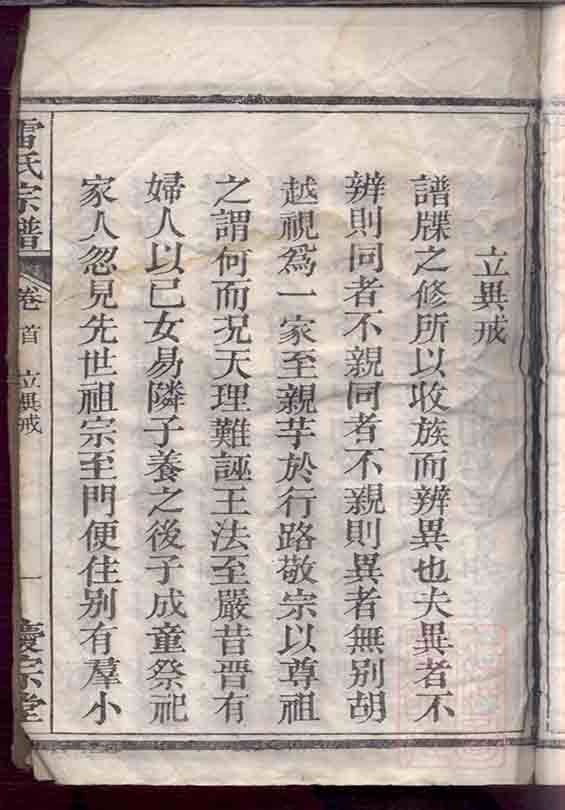 立異戒
譜牒之修所以收族而辨異也夫異者不
辨則同者不親同者不親則異者無別胡
越視為一家至親芋於行路敬宗以尊祖
之謂何而况天理難誣王法至嚴昔晋有
婦人以已女易隣子養之後子成童祭祀
家人忽見先世祖宗至門便住别有羣小
雷氏宗譜
卷首
立異戒
一
慶宗堂